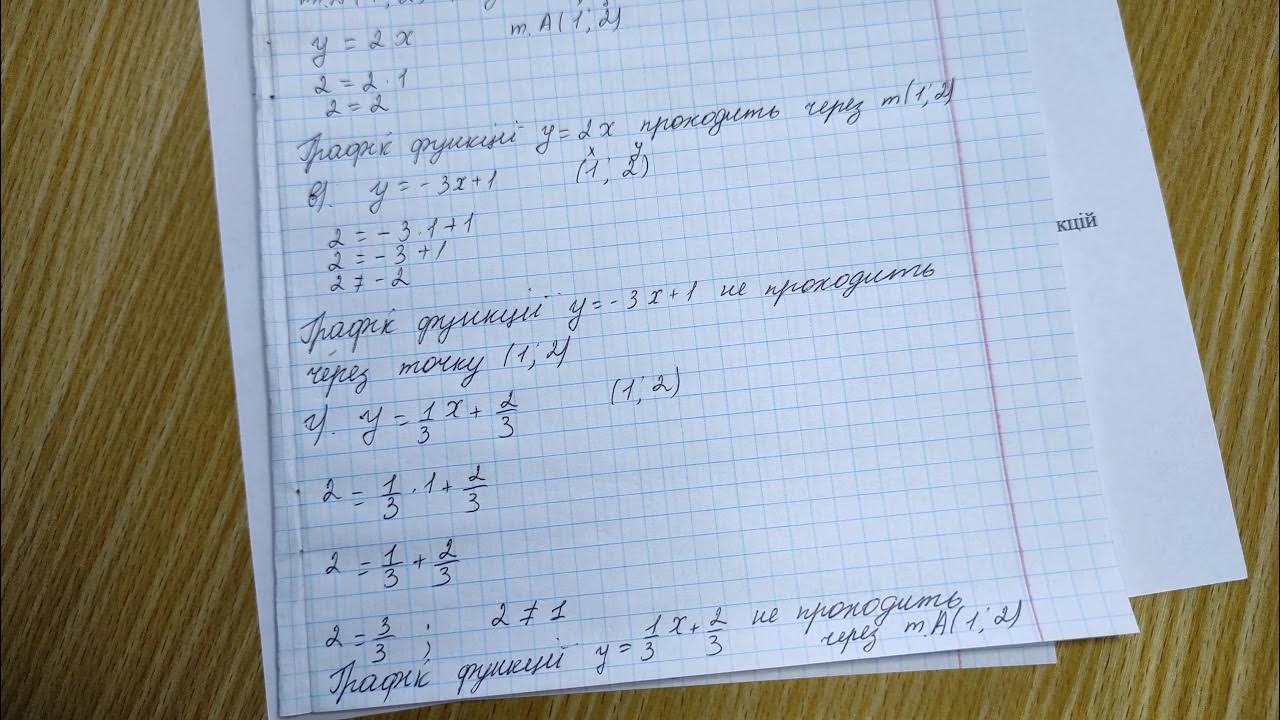 y = 2x т. А(1; 2)
2 = 2 · 1
2 = 2
Графік функції y = 2x проходить через т(1; 2)
x y
в). y = -3x+1 (1; 2)
2 = -3 · 1 + 1
2 = -3 + 1
2 ≠ -2
Графік функції y = -3x+1 не проходить
через точку (1; 2)
г). y = 1/3 x + 2/3 (1; 2)
2 = 1/3 · 1 + 2/3
2 = 1/3 + 2/3
2 = 3/3 ; 2 ≠ 1
Графік функції y = 1/3 x + 2/3 не проходить
через т. А(1; 2)
кцій